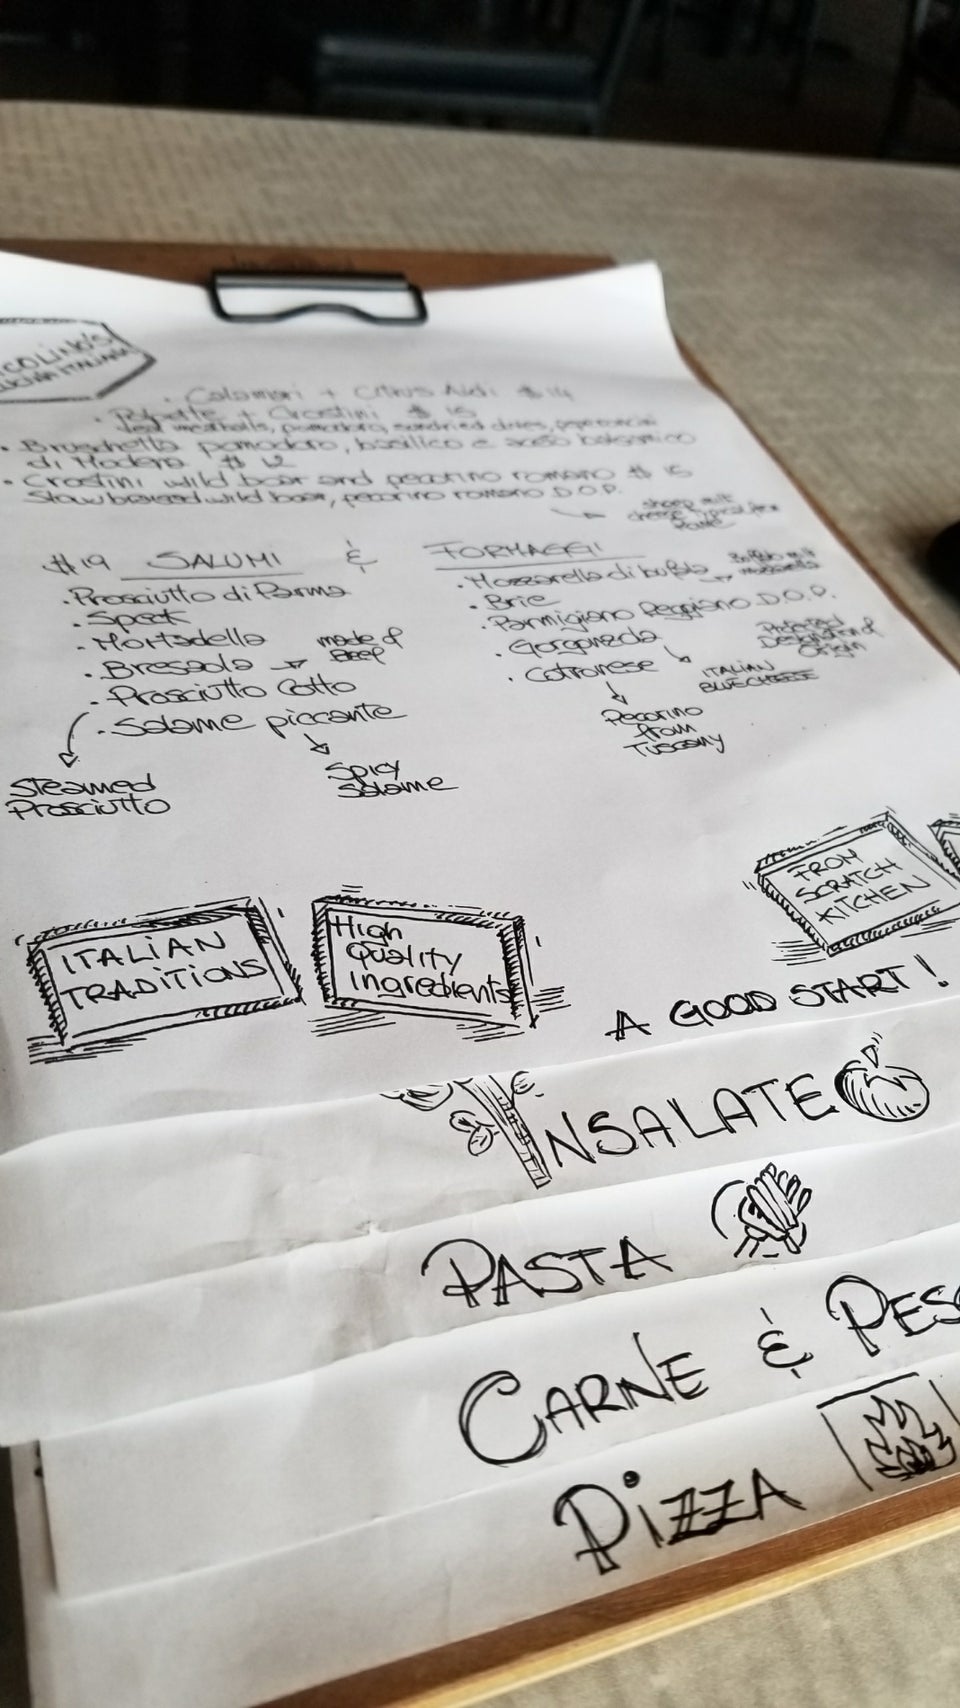 COLINO'S
CUCINA ITALIANA
. Calamari + Citrus Aioli $14
. Polpette + Crostini $15
veal meatballs, pomodoro, sundried olives, peperoncini
• Bruschetta pomodoro, basilico e aceto balsamico
di Modena $12
• Crostini wild boar and pecorino romano $15
Slow braised wild boar, pecorino romano D.O.P.
sheep milk
cheese typical from
Rome
$19 SALUMI &
. Prosciutto di Parma
. Speck
. Mortadella
. Bresaola → made of
Beef
. Prosciutto Cotto
. Salame piccante
Steamed
Prosciutto
Spicy
Salame
FORMAGGI
. Mozzarella di bufala → Buffalo milk
mozzarella
. Brie
. Parmigiano Reggiano D.O.P.
Protected
Designation of
Origin
. Gorgonzola
ITALIAN
BLUE CHEESE
. Cotronese
Pecorino
from
Tuscany
FROM
SCRATCH
KITCHEN
ITALIAN
TRADITIONS
High
Quality
Ingredients
A GOOD START!
INSALATE
PASTA
CARNE & PESC
PIZZA